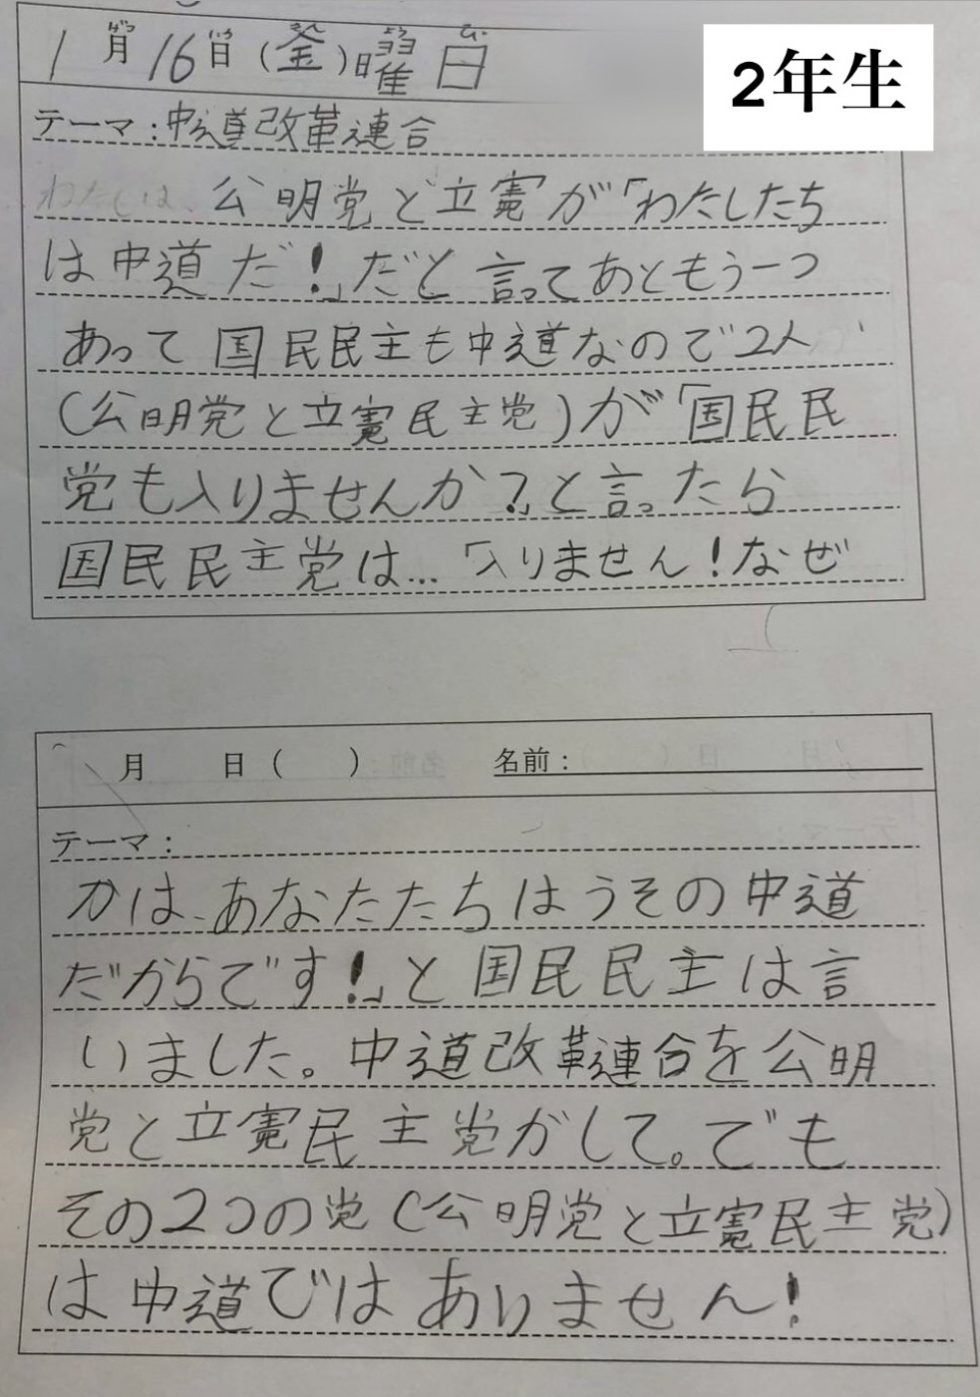 1月16日(金)曜日
がつ にち きん ようび
2年生
テーマ:中道改革連合
わたしは、公明党と立憲が「わたしたち
は中道だ!」だと言ってあともう一つ
あって国民民主も中道なので2人
(公明党と立憲民主党)が「国民民
党も入りませんか?」と言ったら
国民民主党は…「入りません!なぜ
月 日( ) 名前:
テーマ:
かは、あなたたちはうその中道
だからです!」と国民民主は言
いました。中道改革連合を公明
党と立憲民主党がして。でも
その2つの党(公明党と立憲民主党)
は中道ではありません!